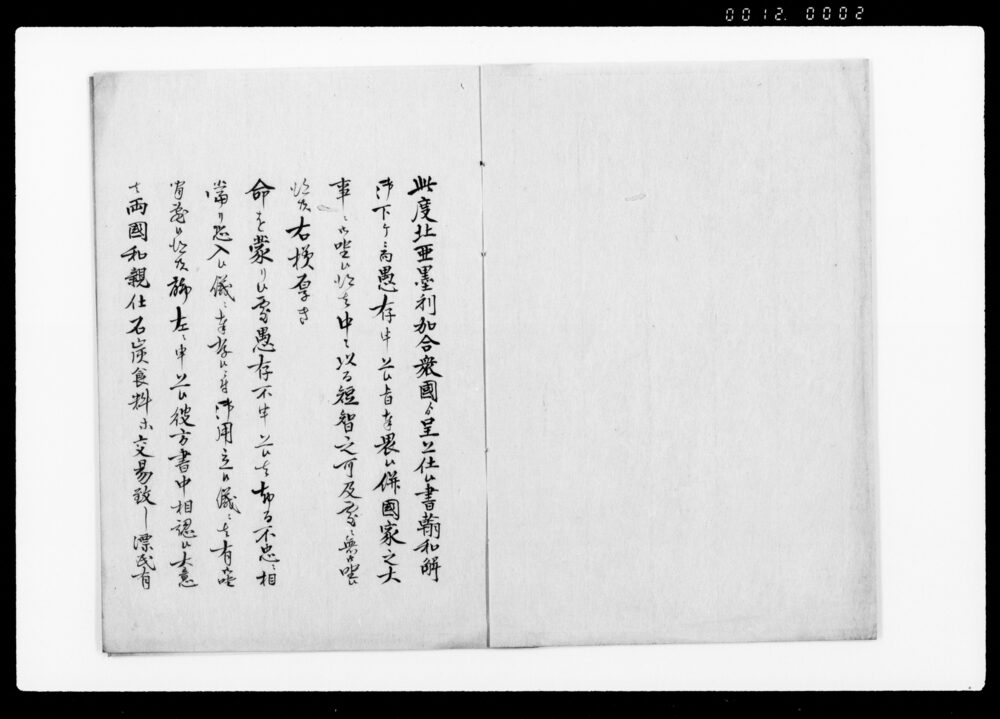 0012. 0002
此度北亜墨利加合衆國ゟ呈上仕候書翰和解
御下ケ之愚存申上候旨奉畏候併國家之大
事ニ御座候得者中々以而短智之可及處ニ無御座
候得共右様厚き
命を蒙り候處愚存不申上候者却而不忠ニ相
當り恐入候儀ニ奉存候ニ付御用立候儀ニ者有御座
間敷候得共 左ニ申上候彼方書中相認候大意
者両國和親仕石炭食料等交易致し漂民有